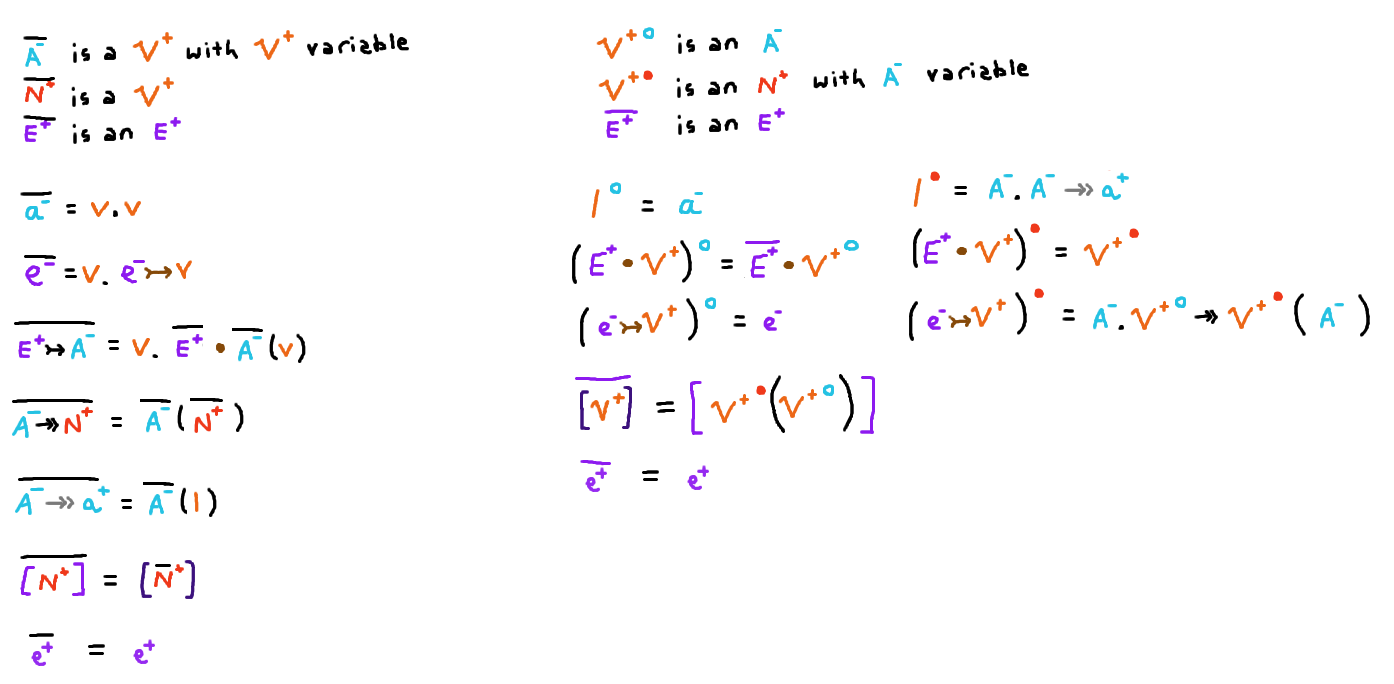 A⁻ is a V⁺ with V⁺ variable
N⁺ is a V⁺
E⁺ is an E⁺
a⁻ = v.v
e⁻ = v. e⁻ ↣ v
E⁺ ↣ A⁻ = v. E⁺ • A⁻(v)
A⁻ ↠ N⁺ = A⁻(N⁺)
A⁻ ↠ a⁺ = A⁻(1)
[N⁺] = [N⁺]
e⁺ = e⁺
V⁺° is an A⁻
V⁺• is an N⁺ with A⁻ variable
E⁺ is an E⁺
1° = a⁻
(E⁺ • V⁺)° = E⁺ • V⁺°
(e⁻ ↣ V⁺)° = e⁻
[V⁺] = [V⁺•(V⁺°)]
e⁺ = e⁺
1• = A⁻. A⁻ ↠ a⁺
(E⁺ • V⁺)• = V⁺•
(e⁻ ↣ V⁺)• = A⁻. V⁺° ↠ V⁺•(A⁻)